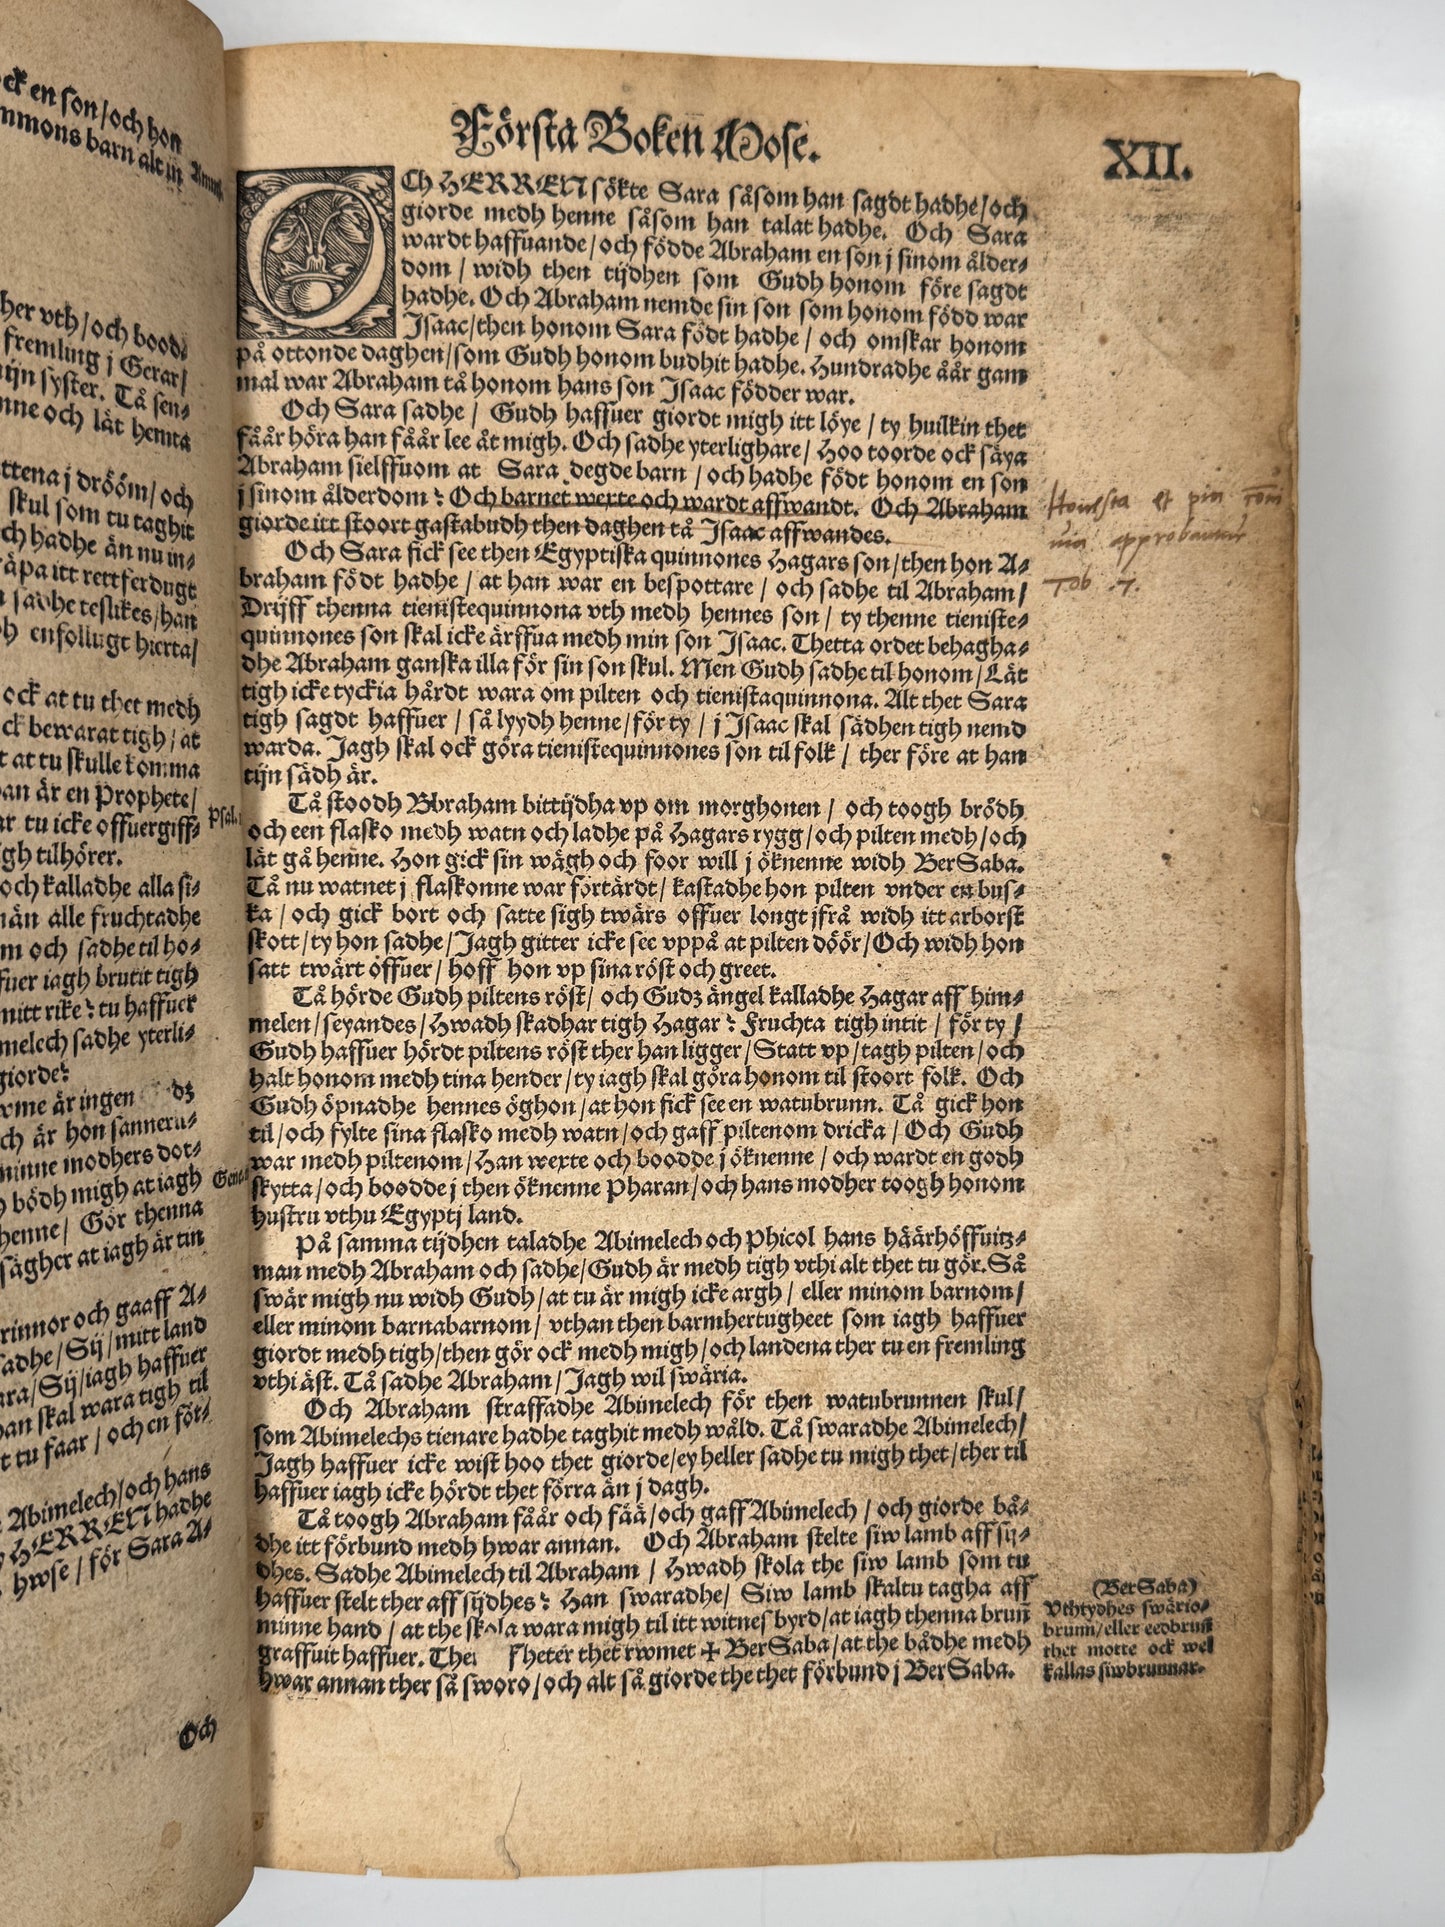 ock en son/och hon
mmons barn alt in
her vth/och boodde
fremling j Gerar/
mijn syster. Tå sen⸗
nne och lät hemta
ttena j drööm/och
skul som tu taghit
ch hadhe än nu in⸗
räpa itt rettferdugt
sadhe teslikes/han
enfollugt hierta/
ock at tu thet medh
ck bewarat tigh/at
at tu skulle komma
an är en Prophete/
ar tu icke offuergiff⸗
Psal.
igh tilhörer.
och kalladhe alla si⸗
män alle fruchtadhe
m och sadhe til ho⸗
fuer iagh brutit tigh
mitt rike: tu haffuer
melech sadhe yterli⸗
giorde:
är ingen
ch är hon sanneru⸗
minne modhers dot⸗
bödh migh at iagh
Gene.
henne/ Gör thenna
sägher at iagh är tin
rinnor och gaaff A⸗
sadhe/Sij/mitt land
ara/Sij/iagh haffuer
han skal wara tigh til
t tu faar/och en för⸗
Abimelech/och hans
HERREN hadhe
hwse/för Sara A⸗
Och
Första Boken Mose.
XII.
OCh HERREN sökte Sara såsom han sagdt hadhe/och
giorde medh henne såsom han talat hadhe. Och Sara
wardt haffuande/och födde Abraham en son j sinom ålder⸗
dom/widh then tijdhen som Gudh honom före sagdt
hadhe. Och Abraham nemde sin son som honom född war
Isaac/then honom Sara födt hadhe/och omskar honom
på ottonde daghen/som Gudh honom budhit hadhe. Hundradhe åår gam
mal war Abraham tå honom hans son Isaac födder war.
Och Sara sadhe/ Gudh haffuer giordt migh itt löye/ty huilkin thet
fåår höra han fåår lee åt migh. Och sadhe yterlighare/Hoo toorde ock säya
Abraham sielffuom at Sara degde barn/och hadhe födt honom en son
j sinom ålderdom: Och barnet wexte och wardt affwandt. Och Abraham
giorde itt stoort gastabudh then daghen tå Isaac affwandes.
Honesta et pia
approbantur
Tob. 7.
Och Sara fick see then Egyptiska quinnones Hagars son/then hon A⸗
braham födt hadhe/at han war en bespottare/och sadhe til Abraham/
Drijff thenna tienistequinnona vth medh hennes son/ty thenne tieniste⸗
quinnones son skal icke ärffua medh min son Isaac. Thetta ordet behagha⸗
dhe Abraham ganska illa för sin son skul. Men Gudh sadhe til honom/Lät
tigh icke tyckia hårdt wara om pilten och tienistaquinnona. Alt thet Sara
tigh sagdt haffuer/så lyydh henne/för ty/j Isaac skal sädhen tigh nemd
warda. Jagh skal ock göra tienistequinnones son til folk/ther före at han
tijn sädh är.
Tå stoodh Abraham bittijdha vp om morghonen/och toogh brödh
och een flasko medh watn och ladhe på Hagars rygg/och pilten medh/och
lät gå henne. Hon gick sin wägh och foor will j öknenne widh BerSaba.
Tå nu watnet j flaskonne war förtärdt/kastadhe hon pilten vnder en bus⸗
ka/och gick bort och satte sigh twärs offuer longt jfrå widh itt arborst
skott/ty hon sadhe/Jagh gitter icke see vppå at pilten döör/Och widh hon
satt twärt öffuer/hoff hon vp sina röst och greet.
Tå hörde Gudh piltens röst/och Gudz ängel kalladhe Hagar aff him⸗
melen/seyandes/Hwadh skadhar tigh Hagar: Fruchta tigh intit/för ty/
Gudh haffuer hördt piltens röst ther han ligger/Statt vp/tagh pilten/och
halt honom medh tina hender/ty iagh skal göra honom til stoort folk. Och
Gudh öpnadhe hennes öghon/at hon fick see en watubrunn. Tå gick hon
til/och fylte sina flasko medh watn/och gaff piltenom dricka/Och Gudh
war medh piltenom/Han wexte och boodde j öknenne/och wardt en godh
skytta/och boodde j then öknenne Pharan/och hans modher toogh honom
hustru vthu Egyptj land.
På samma tijdhen taladhe Abimelech och Phicol hans häärhöffuitz⸗
man medh Abraham och sadhe/Gudh är medh tigh vthi alt thet tu gör. Så
swär migh nu widh Gudh/at tu är migh icke argh/eller minom barnom/
eller minom barnabarnom/vthan then barmhertugheet som iagh haffuer
giordt medh tigh/then gör ock medh migh/och landena ther tu en fremling
vthi äst. Tå sadhe Abraham/Jagh wil swäria.
Och Abraham straffadhe Abimelech för then watubrunnen skul/
som Abimelechs tienare hadhe taghit medh wåld. Tå swaradhe Abimelech/
Jagh haffuer icke wist hoo thet giorde/ey heller sadhe tu migh thet/ther til
haffuer iagh icke hördt thet förra än j dagh.
Tå toogh Abraham fåår och fää/och gaff Abimelech/och giorde bå⸗
dhe itt förbund medh hwar annan. Och Abraham stelte siw lamb aff sij⸗
dhes. Sadhe Abimelech til Abraham/Hwadh skola the siw lamb som tu
haffuer stelt ther aff sijdhes: Han swaradhe/Siw lamb skaltu tagha aff
minne hand/at the skola wara migh til itt witnesbyrd/at iagh thenna brun̄
graffuit haffuer. Ther heter thet rwmet ✠ BerSaba/at the bådhe medh
hwar annan ther så sworo/och alt så giorde the thet förbund j BerSaba.
(BerSaba)
Vthtydhes swärio⸗
brunn/eller eedbrun̄
thet motte ock wel
kallas siwbrunnar.